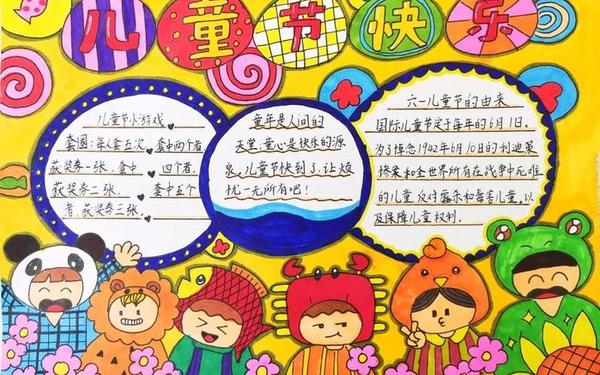 儿童节快乐
儿童节小游戏
套圈:每人套五次,套中两个者
获奖券一张,套中四个者,
获奖券二张,套中五个
者,获奖券三张.
童年是人间的
天堂,童心是快乐的源
泉,儿童节快到了,让烦
忧一无所有吧!
六一儿童节的由来
国际儿童节定于每年的6月1日。
为了悼念1942年6月10日的利迪策
惨案和全世界所有在战争中死难
的儿童,反对虐杀和毒害儿童,以
及保障儿童权利.